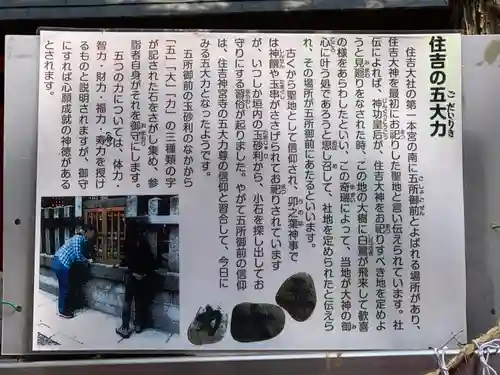 住吉の五大力
ごだいりき
住吉大社の第一本宮の南に五所御前とよばれる場所があり、
住吉大神を最初にお祀りした聖地と言い伝えられています。社
伝によれば、神功皇后が、住吉大神をお祀りすべき地を定めよ
うと見廻りをなされた時、この地の大樹に白鷺が飛来して歓喜
の様をあらわしたといい、この奇瑞によって、当地が大神の御
心に叶う処であろうと思し召して、社地を定められたと伝えら
れ、その場所が五所御前にあたるといいます。
古くから聖地として信仰され、卯之葉神事で
は神饌や玉串がささげられてお祀りされています
が、いつしか垣内の玉砂利から、小石を探し出してお
守りにする習俗が起りました。やがて五所御前の信仰
は、住吉神宮寺の五大力尊の信仰と習合して、今日に
みる五大力となったようです。
五所御前の玉砂利のなかから
「五」「大」「力」の三種類の字
が記された石をさがし集め、参
詣者自身がそれを御守にします。
五つの力については、体力・
智力・財力・福力・寿力を授け
るものと説明されますが、御守
にすれば心願成就の神徳がある
とされます。